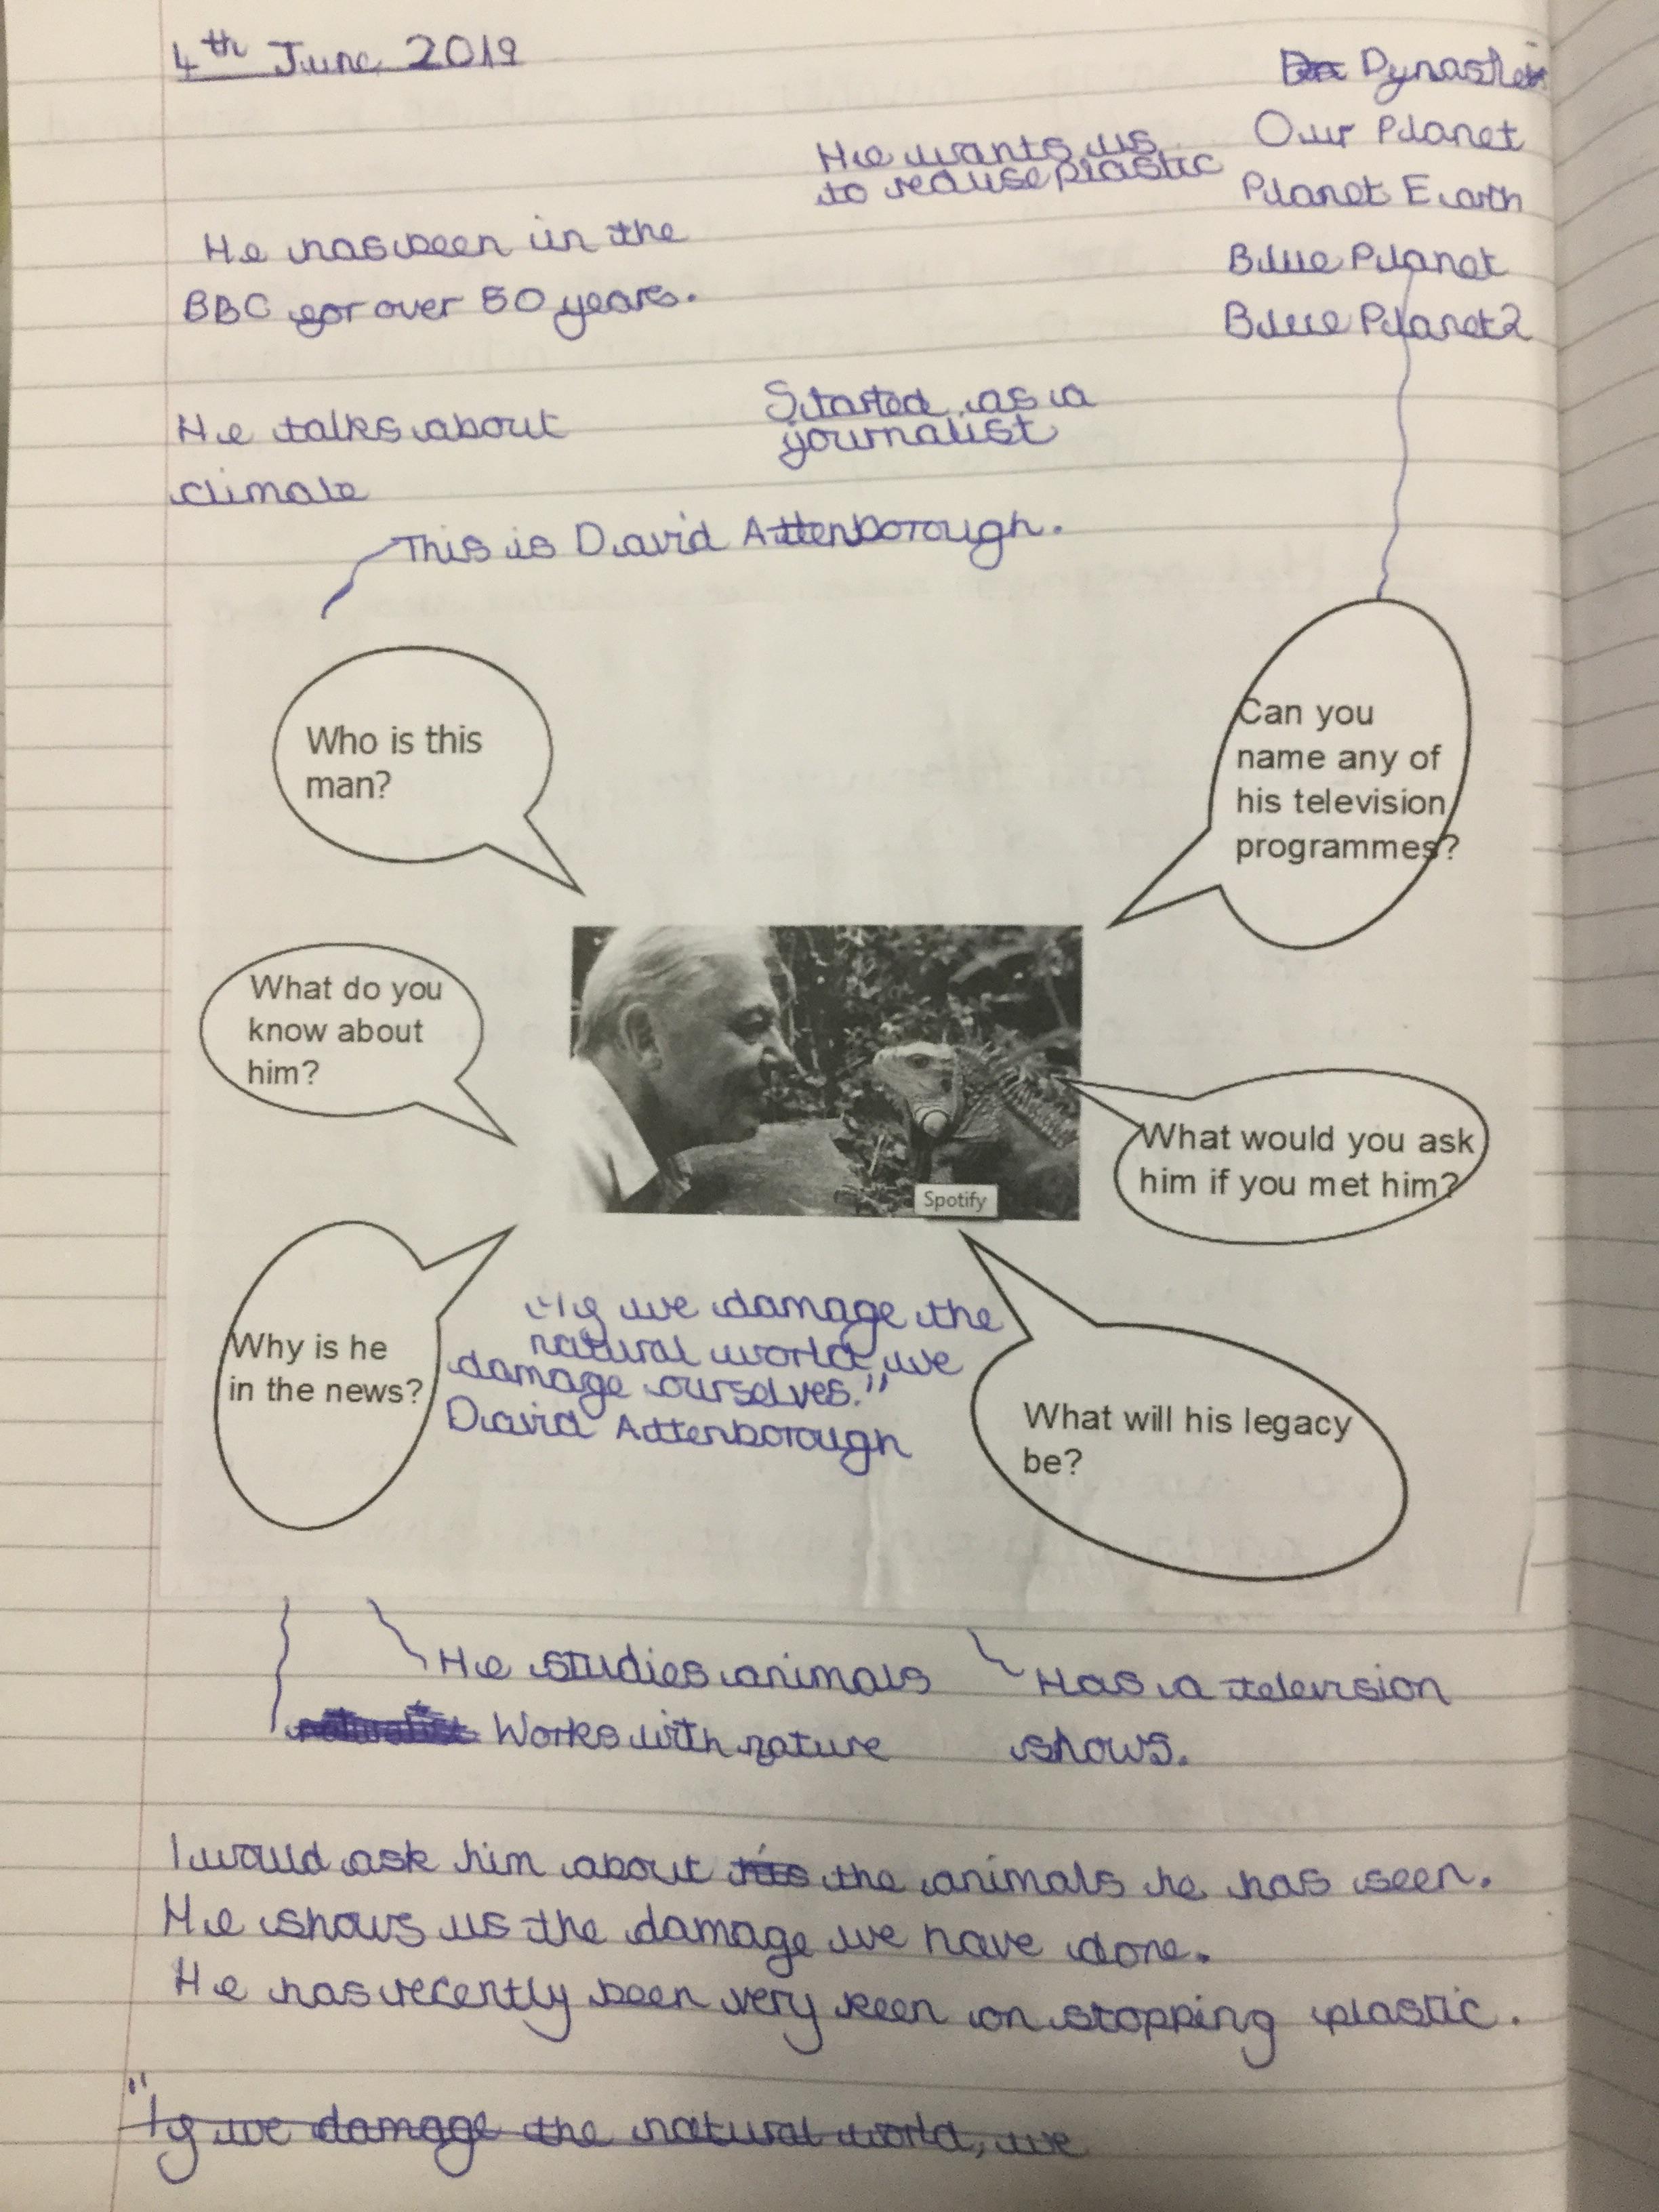 4th June 2019
Dynasties
Our Planet
Planet Earth
Blue Planet
Blue Planet 2
He wants us
to reduse plastic
He has been in the
BBC for over 50 years.
He talks about
climate
Started as a
journalist
This is David Attenborough.
Who is this
man?
Can you
name any of
his television
programmes?
What do you
know about
him?
What would you ask
him if you met him?
Spotify
Why is he
in the news?
"If we damage the
natural world, we
damage ourselves."
David Attenborough
What will his legacy
be?
He studies animals
naturalist Works with nature
Has a television
shows.
I would ask him about his the animals he has seen.
He shows us the damage we have done.
He has recently been very keen on stopping plastic.
"If we damage the natural world, we